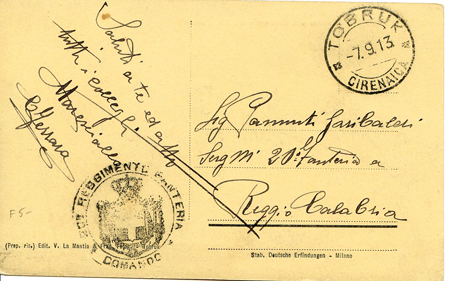 Saluti a te ed a
tutti i colleghi
Maresciallo
Ferrara
TOBRUK
-7.9.13
CIRENAICA
Sig Garibaldi
Serg M 20° Fanteria a
Reggio Calabria
REGGIMENTO FANTERIA
COMANDO
F5-
(Prep. ris.) Edit. V. La Mantia &
Stab. Deutsche Erfindungen - Milano